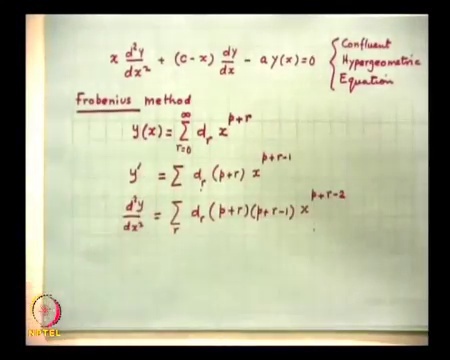 x d²y/dx² + (c-x) dy/dx - a y(x) = 0 { Confluent
Hypergeometric
Equation
Frobenius method
y(x) = ∑_{r=0}^{∞} d_r x^{p+r}
y' = ∑ d_r (p+r) x^{p+r-1}
d²y/dx² = ∑_r d_r (p+r)(p+r-1) x^{p+r-2}
NPTEL